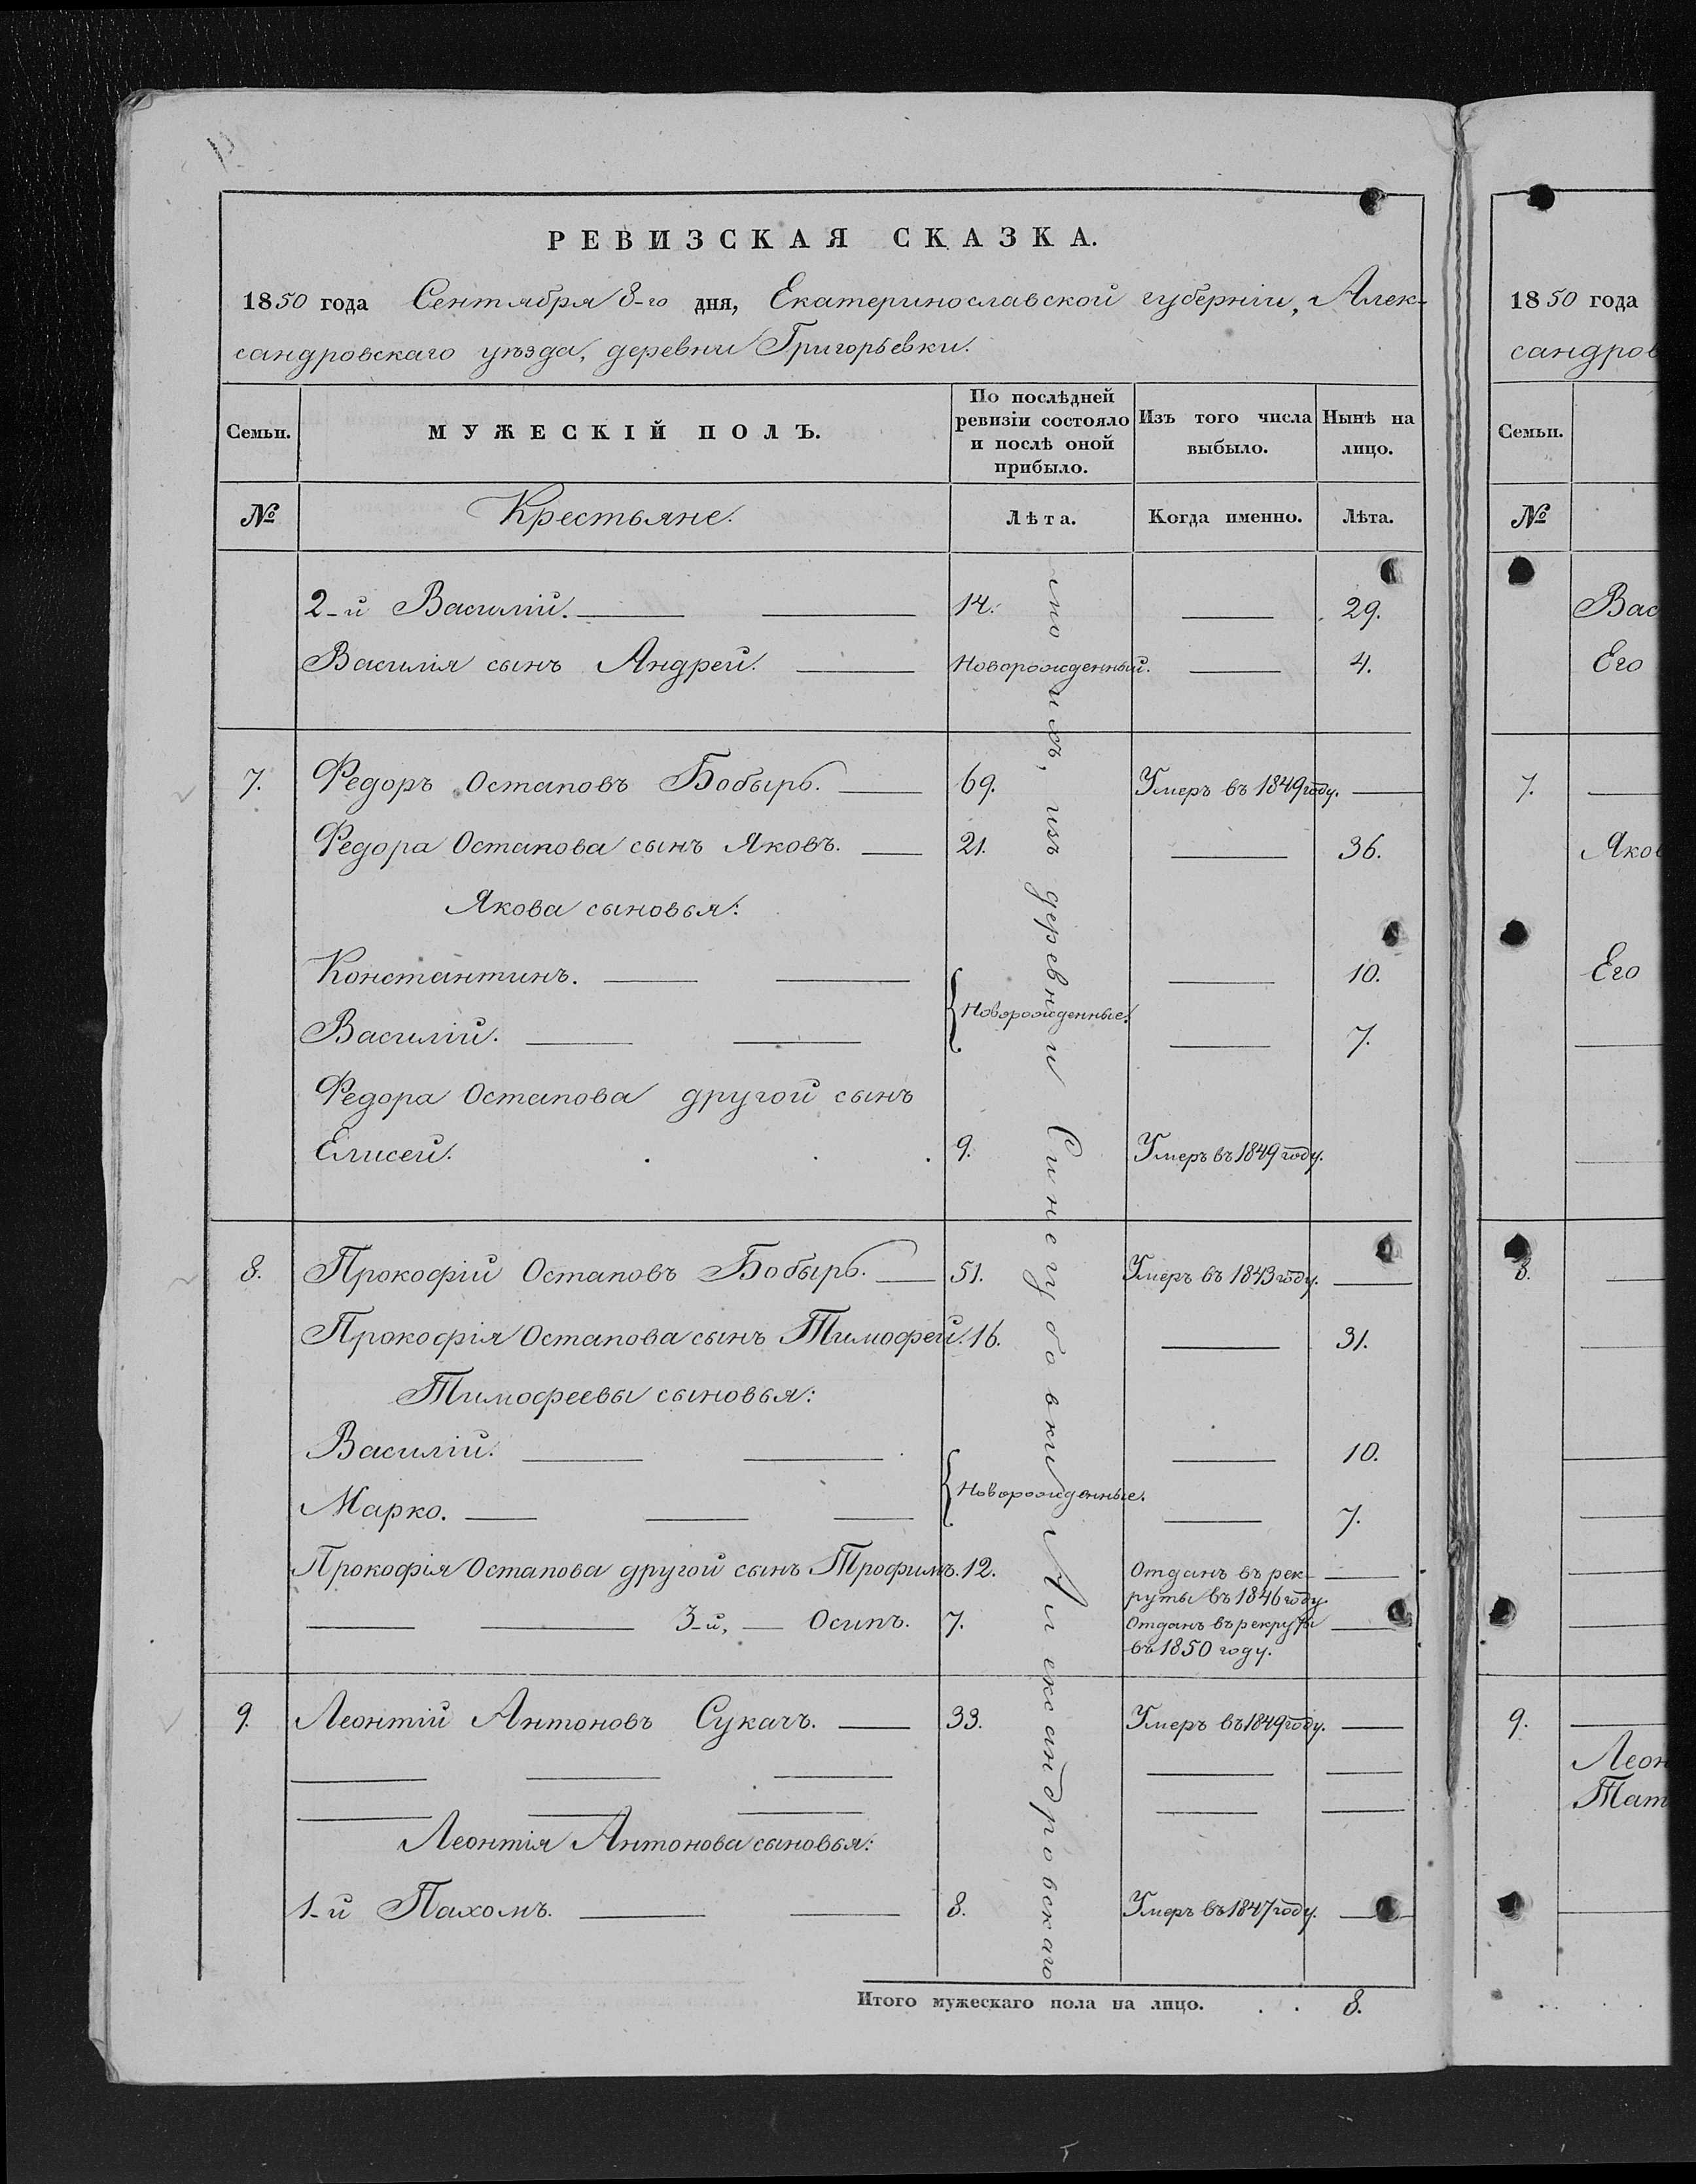 РЕВИЗСКАЯ СКАЗКА.
1850 года Сентября 8-го дня, Екатеринославской губерніи, Алек-
сандровскаго уѣзда, деревни Григорьевки.
Семьи. МУЖЕСКІЙ ПОЛЪ. По послѣдней ревизіи состояло и послѣ оной прибыло. Изъ того числа выбыло. Нынѣ на лицо.
№ Крестьяне. Лѣта. Когда именно. Лѣта.
2-й Василій. 14. 29.
Василія сынъ Андрей. Новорожденный. 4.
7. Федоръ Остаповъ Бобырь. 69. Умеръ въ 1849 году.
Федора Остапова сынъ Яковъ. 21. 36.
Якова сыновья:
Константинъ. 10.
Новорожденные.
Василій. 7.
Федора Остапова другой сынъ
Елисей. 9. Умеръ въ 1849 году.
8. Прокофій Остаповъ Бобырь. 51. Умеръ въ 1843 году.
Прокофія Остапова сынъ Тимофей. 16. 31.
Тимофеевы сыновья:
Василій. 10.
Новорожденные.
Марко. 7.
Прокофія Остапова другой сынъ Трофимъ. 12. Отданъ въ рек-
руты въ 1846 году.
3-й, Осипъ. 7. Отданъ въ рекруты
въ 1850 году.
9. Леонтій Антоновъ Сукачъ. 33. Умеръ въ 1849 году.
Леонтія Антонова сыновья:
1-й Пахомъ. 8. Умеръ въ 1847 году.
ихъ, изъ деревни Синегубовки Александровскаго
Итого мужескаго пола на лицо. . . 8.
1850 года
сандров
Семьи.
№
Вас
Его
7.
Яков
Его
8.
9.
Леон
Тат